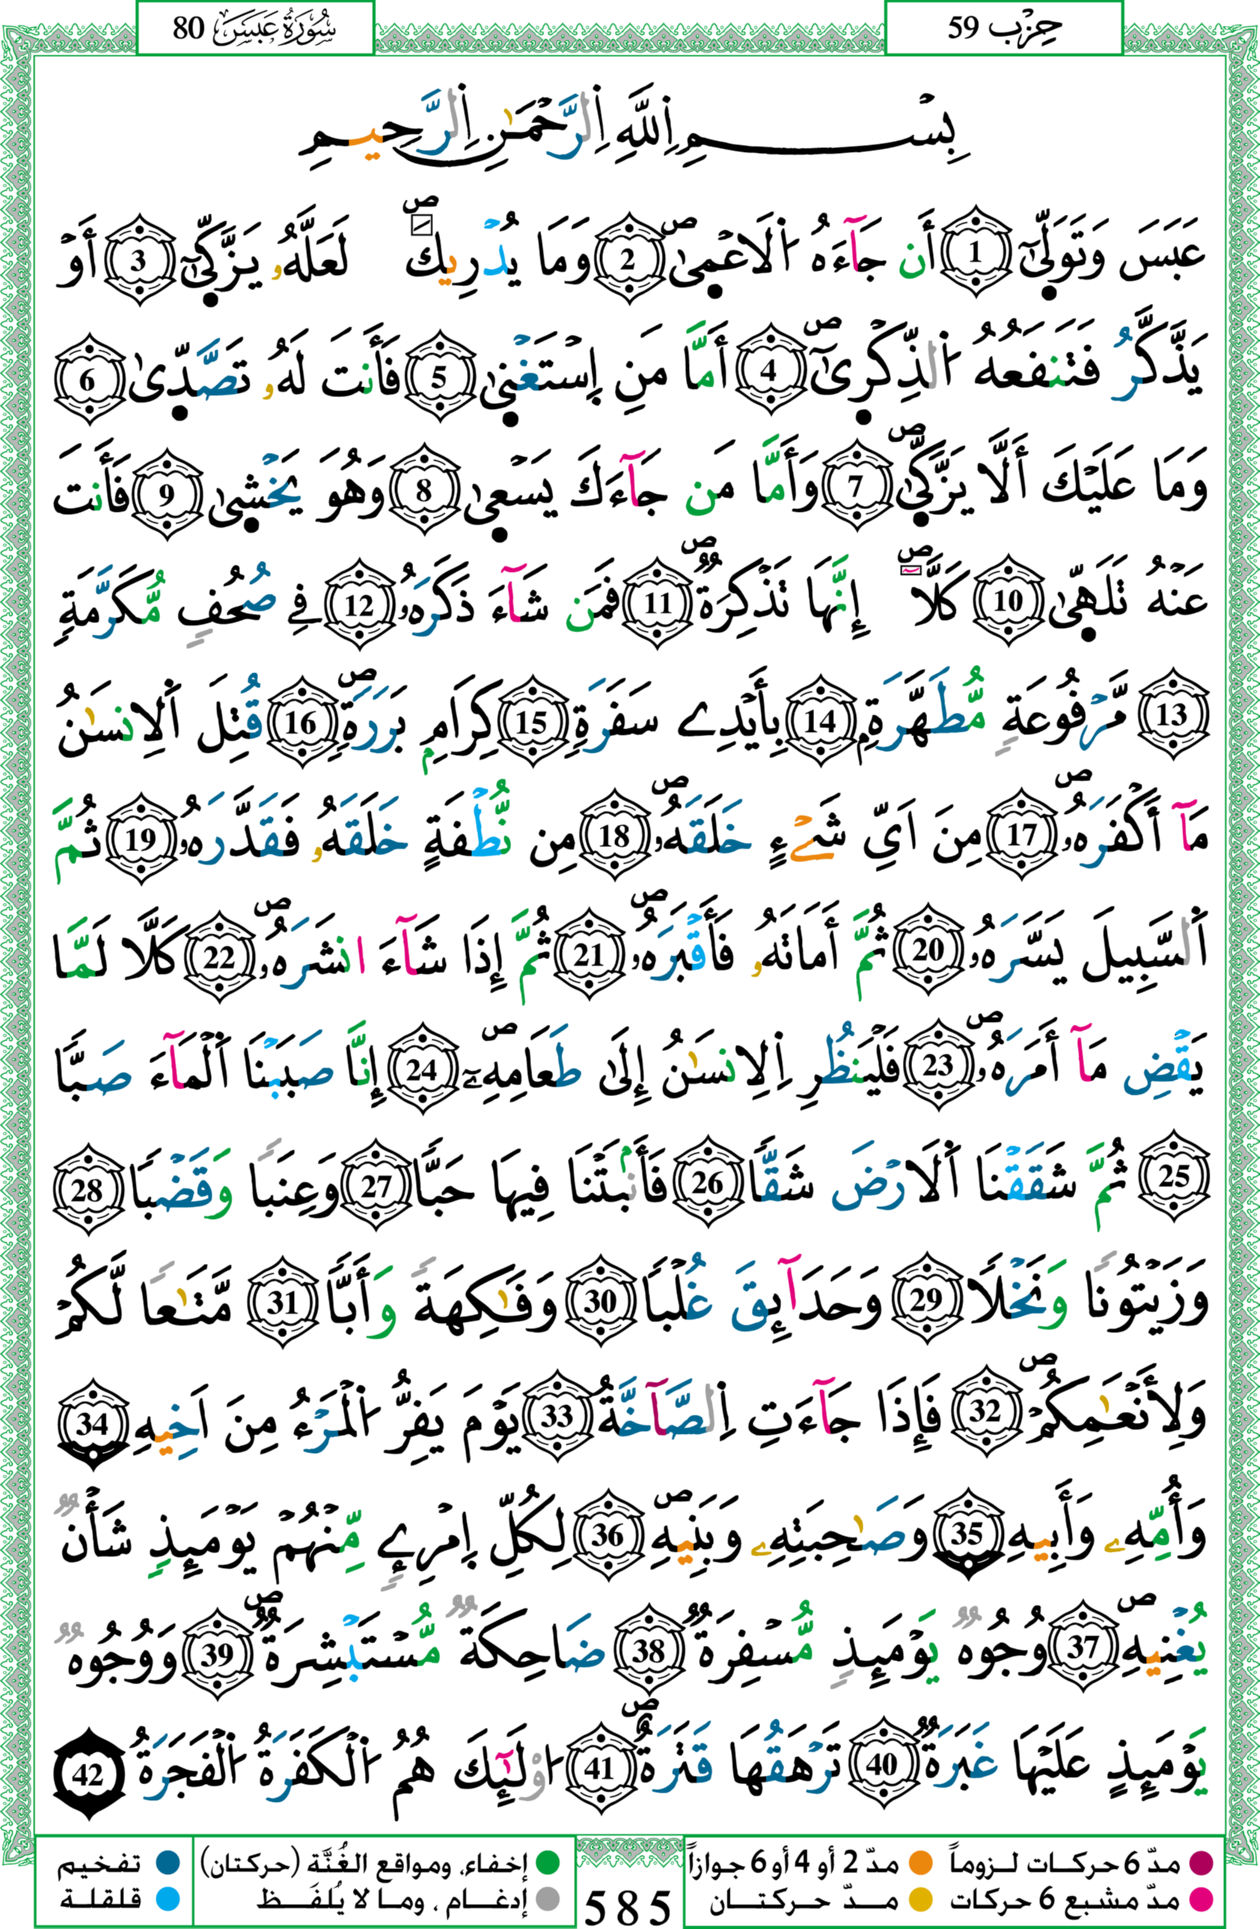 سُورَةُ عَبَسَ 80
حِزْب 59
بِسْمِ اِللَّهِ اِلرَّحْمَٰنِ اِلرَّحِيمِ
عَبَسَ وَتَوَلّ۪ىٰٓ 1 أَن جَآءَهُ اُلَاعْم۪ىٰ ص 2 وَمَا يُدْرِيكَ ص لَعَلَّهُۥ يَزَّكّ۪ىٰٓ 3 أَوْ
يَذَّكَّرُ فَتَنفَعُهُ اُلذِّكْر۪ىٰٓ ص 4 أَمَّا مَنِ اِسْتَغْن۪ىٰ 5 فَأَنتَ لَهُۥ تَصَّدّ۪ىٰ 6
وَمَا عَلَيْكَ أَلَّا يَزَّكّ۪ىٰ ص 7 وَأَمَّا مَن جَآءَكَ يَسْع۪ىٰ 8 وَهُوَ يَخْش۪ىٰ 9 فَأَنتَ
عَنْهُ تَلَهّ۪ىٰ 10 كَلَّآ ص إِنَّهَا تَذْكِرَةٌ ص 11 فَمَن شَآءَ ذَكَرَهُۥ 12 فِے صُحُفٍ مُّكَرَّمَةٍ
13 مَّرْفُوعَةٍ مُّطَهَّرَةٍۭ 14 بِأَيْدِے سَفَرَةٍ 15 كِرَامٍۭ بَرَرَةٍ ص 16 قُتِلَ اَلِانسَٰنُ
مَآ أَكْفَرَهُۥ ص 17 مِنَ اَيِّ شَےْءٍ خَلَقَهُۥ ص 18 مِن نُّطْفَةٍ خَلَقَهُۥ فَقَدَّرَهُۥ 19 ثُمَّ
اَلسَّبِيلَ يَسَّرَهُۥ 20 ثُمَّ أَمَاتَهُۥ فَأَقْبَرَهُۥ ص 21 ثُمَّ إِذَا شَآءَ انشَرَهُۥ ص 22 كَلَّا لَمَّا
يَقْضِ مَآ أَمَرَهُۥ ص 23 فَلْيَنظُرِ اِلِانسَٰنُ إِلَىٰ طَعَامِهِۦٓ ص 24 إِنَّا صَبَبْنَا اَلْمَآءَ صَبًّا
25 ثُمَّ شَقَقْنَا اَلَارْضَ شَقًّا 26 فَأَنۢبَتْنَا فِيهَا حَبًّا 27 وَعِنَبًا وَقَضْبًا 28
وَزَيْتُونًا وَنَخْلًا 29 وَحَدَآئِقَ غُلْبًا 30 وَفَٰكِهَةً وَأَبًّا 31 مَّتَٰعًا لَّكُمْ
وَلِأَنْعَٰمِكُمْ ص 32 فَإِذَا جَآءَتِ اِلصَّآخَّةُ 33 يَوْمَ يَفِرُّ اُلْمَرْءُ مِنَ اَخِيهِ 34
وَأُمِّهِۦ وَأَبِيهِ 35 وَصَٰحِبَتِهِۦ وَبَنِيهِ ص 36 لِكُلِّ اِمْرِےٍٕ مِّنْهُمْ يَوْمَئِذٍ شَأْنٌ
يُغْنِيهِ ص 37 وُجُوهٌ يَوْمَئِذٍ مُّسْفِرَةٌ 38 ضَاحِكَةٌ مُّسْتَبْشِرَةٌ ص 39 وَوُجُوهٌ
يَوْمَئِذٍ عَلَيْهَا غَبَرَةٌ 40 تَرْهَقُهَا قَتَرَةٌ ص 41 اُوْلَٰٓئِكَ هُمُ اُلْكَفَرَةُ اُلْفَجَرَةُ 42
مدّ 6 حركات لـزوماً مدّ 2 أو 4 أو 6 جوازاً
مدّ مشبع 6 حركات مدّ حركتـان
585
إخفاء، ومواقع الغُنَّة (حركتان) تفخيم
إدغام ، وما لا يُلفَـظ قلقلة